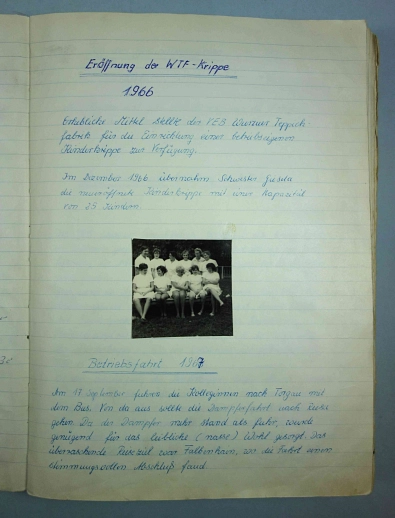 Eröffnung der WTF-Krippe
1966
Erhebliche Mittel stellte der VEB Wurzner Teppich-
fabrik für die Einrichtung einer betriebseigenen
Kinderkrippe zur Verfügung.
Im Dezember 1966 übernahm Schwester Gisela
die neueröffnete Kinderkrippe mit einer Kapazität
von 25 Kindern.
Betriebsfahrt 1967
Am 17. September fuhren die Kolleginnen nach Torgau mit
dem Bus. Von da aus sollte die Dampferfahrt nach Riesa
gehen. Da der Dampfer mehr stand als fuhr, wurde
genügend für das leibliche (nasse) Wohl gesorgt. Das
überraschende Reiseziel war Falkenhain, wo die Fahrt einen
stimmungsvollen Abschluß fand.